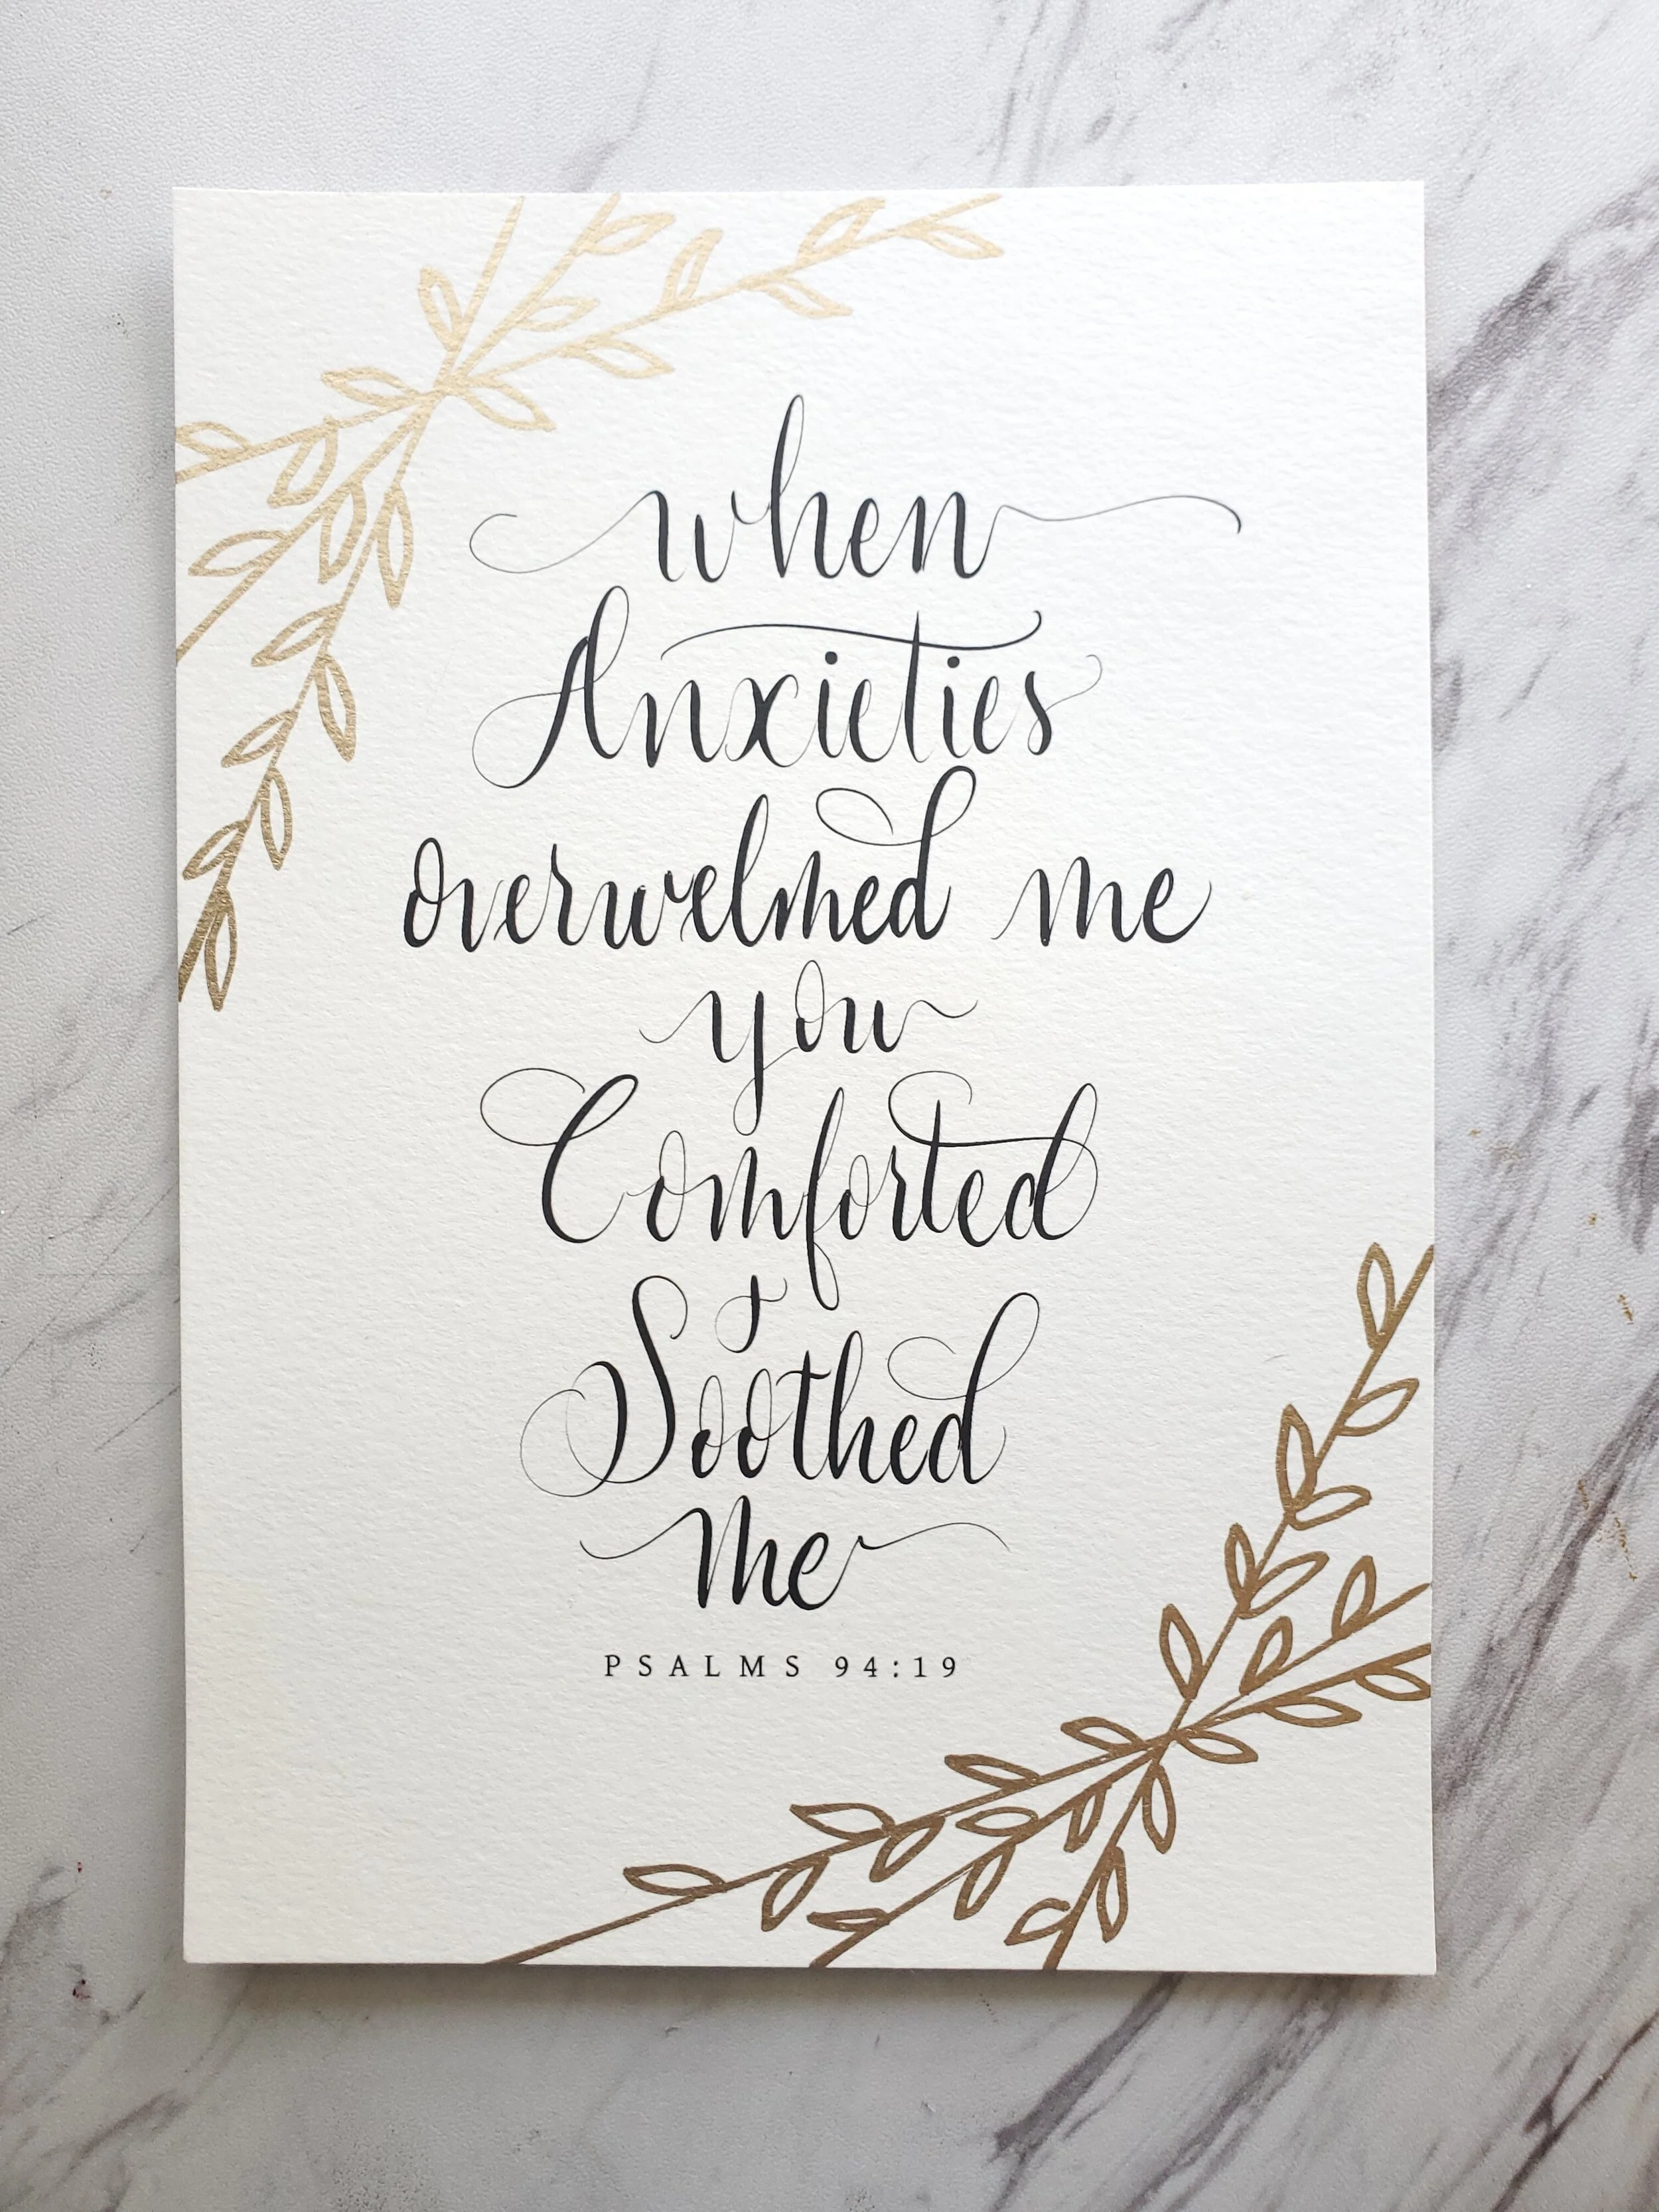 when
Anxieties
overwelmed me
you
Comforted
&
Soothed
me
PSALMS 94:19